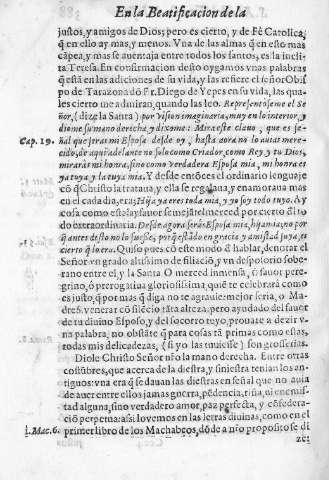 En la Beatificacion de la
justos, y amigos de Dios; pero es cierto, y de Fè Catolica,
q̃ en ello ay mas, y menos. Vna de las almas q̃ en esto mas
cãpea, y mas se auentaja entre todos los santos, es la incli-
ta Teresa. En confirmacion desto oygamos vnas palabras
q̃ està en las adiciones de su vida, y las refiere el señor Obis
po de Tarazona dõ Fr. Diego de Yepes en su vida, las qua-
les cierto me admiran, quando las leo. Representòseme el Se
ñor, (dize la Santa) por vision imaginaria, muy en lo interior, y
diome su mano derecha, y dixome: Mira este clauo, que es se-
Cap. 19. ñal que seras mi Esposa desde oy, hasta aora no lo auias mere-
cido, de aqui adelante no solo como Criador, como Rey, y tu Dios,
miraràs mi honra, sino como verdadera Esposa mia, mi honra es
ya tuya, y la tuya mia. Y desde entõces el ordinario lenguaje
cõ q̃ Christo la trataua, y ella se regalaua, y enamoraua mas
en el cada dia, era; Hija ya eres toda mia, y yo soy todo tuyo. Ay
cosa como esta!
do extraordinaria. Desde agora seràs Esposa mia, hija mia, no por
q̃ antes desto no lo fuesse, pues estãdo en gracia y amistad suya, es
cierto q̃ lo era. Quiso pues cõ este modo d̃ hablar, denotar el
Señor vn grado altissimo de filiaciõ, y vn desposorio sobe-
rano entre el, y la Santa. O merced inmensa, ò fauor pere-
grino, ò prerogatiua gloriosissima, quiẽ te celebrarà como
es justo, q̃ por mas q̃ diga no te agrauie: mejor seria, o Ma-
dre S. venerar cõ silẽcio tãta alteza, pero ayudado del fauor
de tu diuino Esposo, y del socorro tuyo, prouare a dezir v-
na palabra, no obstãte q̃ para cosas tã primas como estas,
todas mis delicadezas, (si yo las tuuiesse) son grosserias.
Diole Christo Señor nr̃o la mano derecha. Entre otras
costũbres, que acerca de la diestra, y siniestra tenian los an-
tiguos: vna era q̃ se dauan las diestras en señal que no auia
de auer entre ellos jamas guerra, pẽdencia, riña, ni enemis-
tad alguna, sino verdadero amor, paz perfecta, y cõfedera-
ciõ perpetua: assi lo vemos en las letras diuinas, como en el
1. Mac. 6. primer libro de los Machabeos, dõde a nr̃o proposito se di
ze: